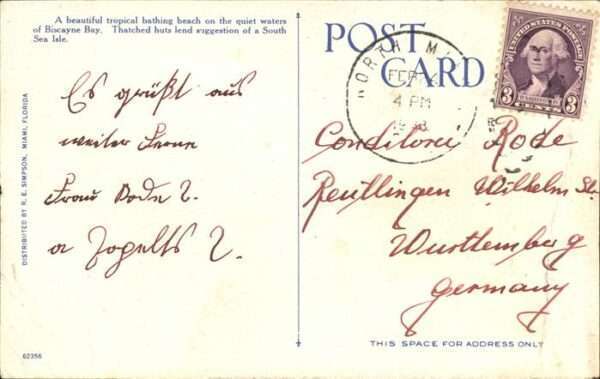 A beautiful tropical bathing beach on the quiet waters
of Biscayne Bay. Thatched huts lend suggestion of a South
Sea Isle.
POST CARD
NORTH MI
FEB
4 PM
UNITED STATES POSTAGE
WASHINGTON
3 CENTS 3
Es grüßt aus
weiter Ferne
Frau
Conditorei Rode
Reutlingen Wilhelm St.
Wurttemberg
Germany
DISTRIBUTED BY R. E. SIMPSON, MIAMI, FLORIDA
THIS SPACE FOR ADDRESS ONLY
62356